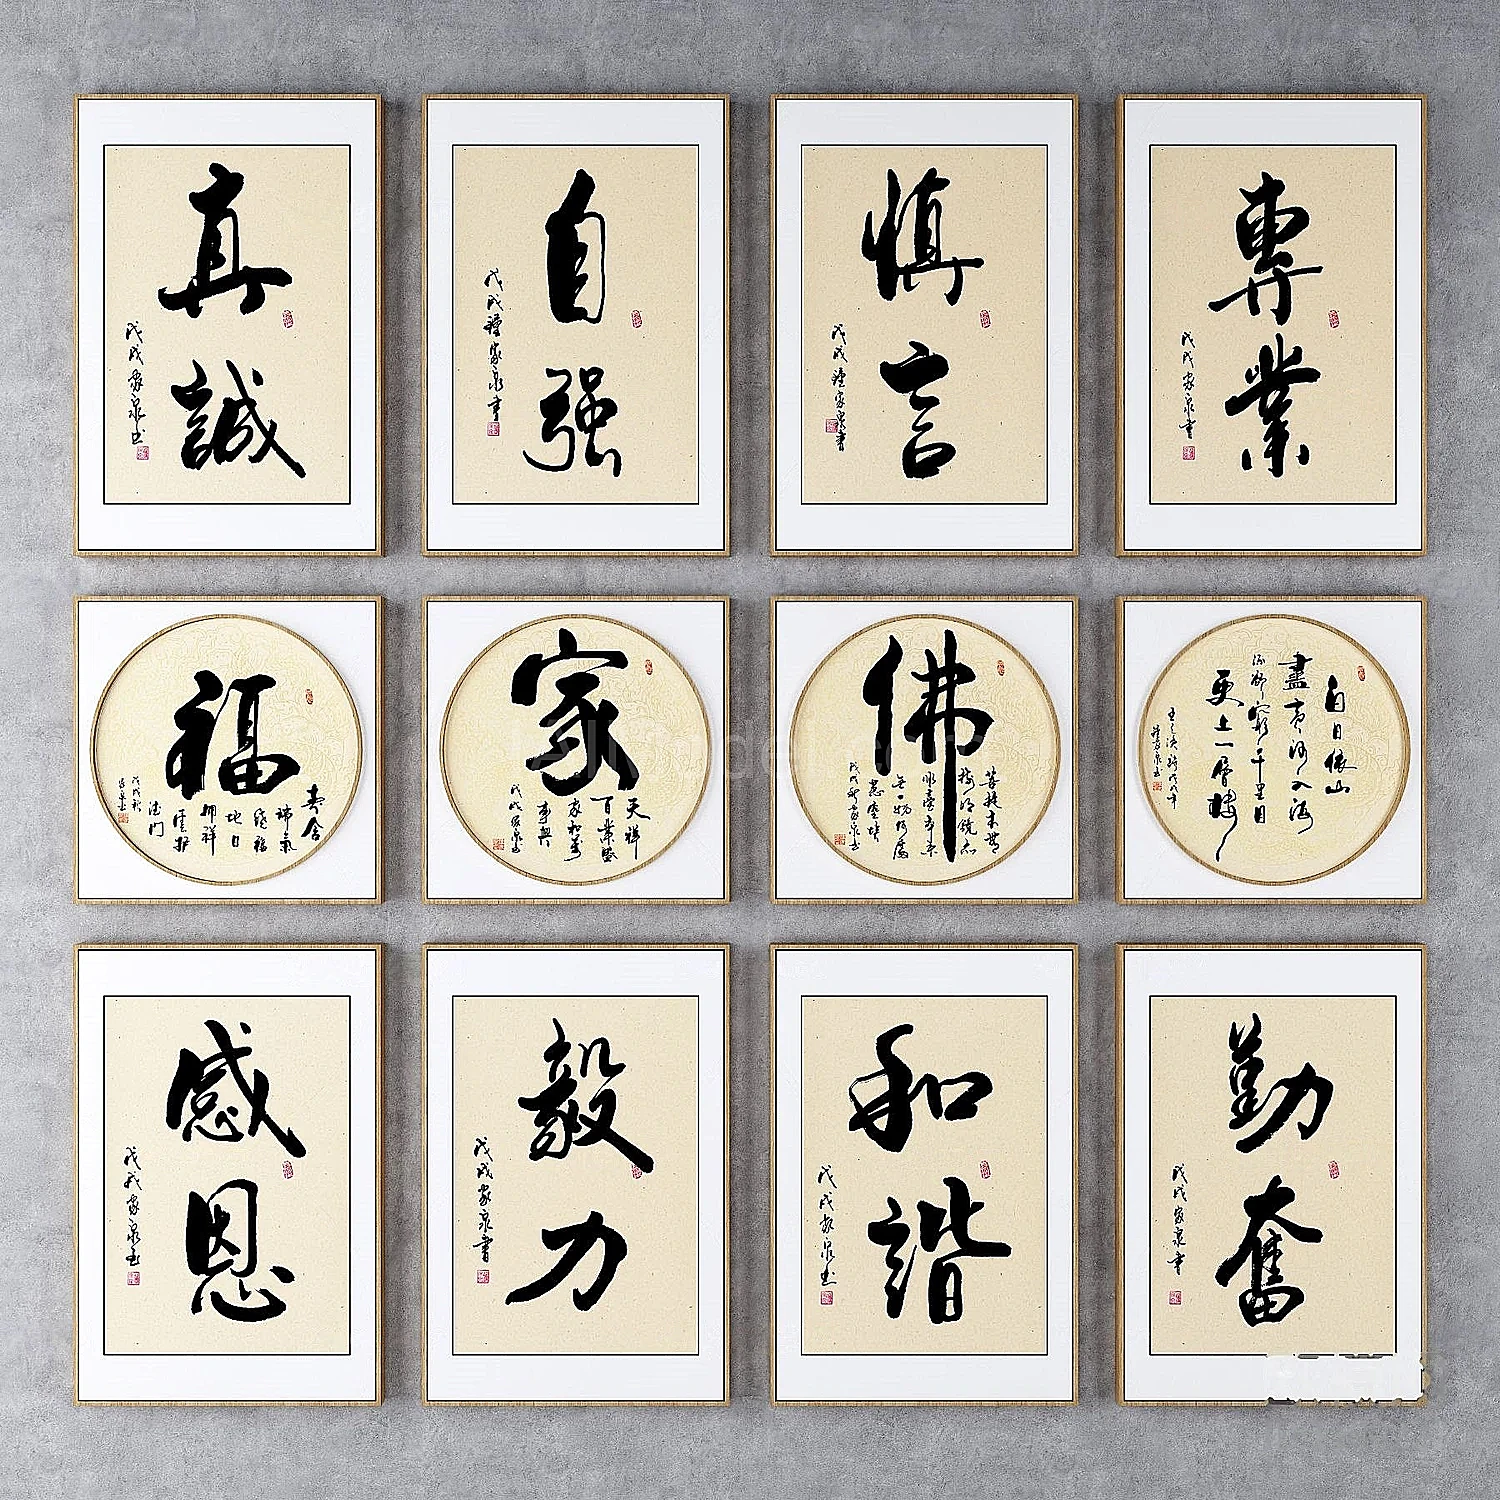 真誠
戊戌家泉书
自强
戊戌家泉書
慎言
戊戌家泉書
專業
戊戌家泉書
福
瑞氣
福
地日
拥祥
雲护
門
家
天祥
百業盛
家和萬
事興
戊戌家泉书
佛
菩提本無
樹明鏡亦
非臺本来
无一物何處
惹塵埃
戊戌秋家泉书
白日依山
盡黄河入海
流欲窮千里目
更上一層樓
王之涣詩戊戌年
家泉书
感恩
戊戌家泉书
毅力
戊戌家泉書
和諧
戊戌家泉书
勤奮
戊戌家泉書